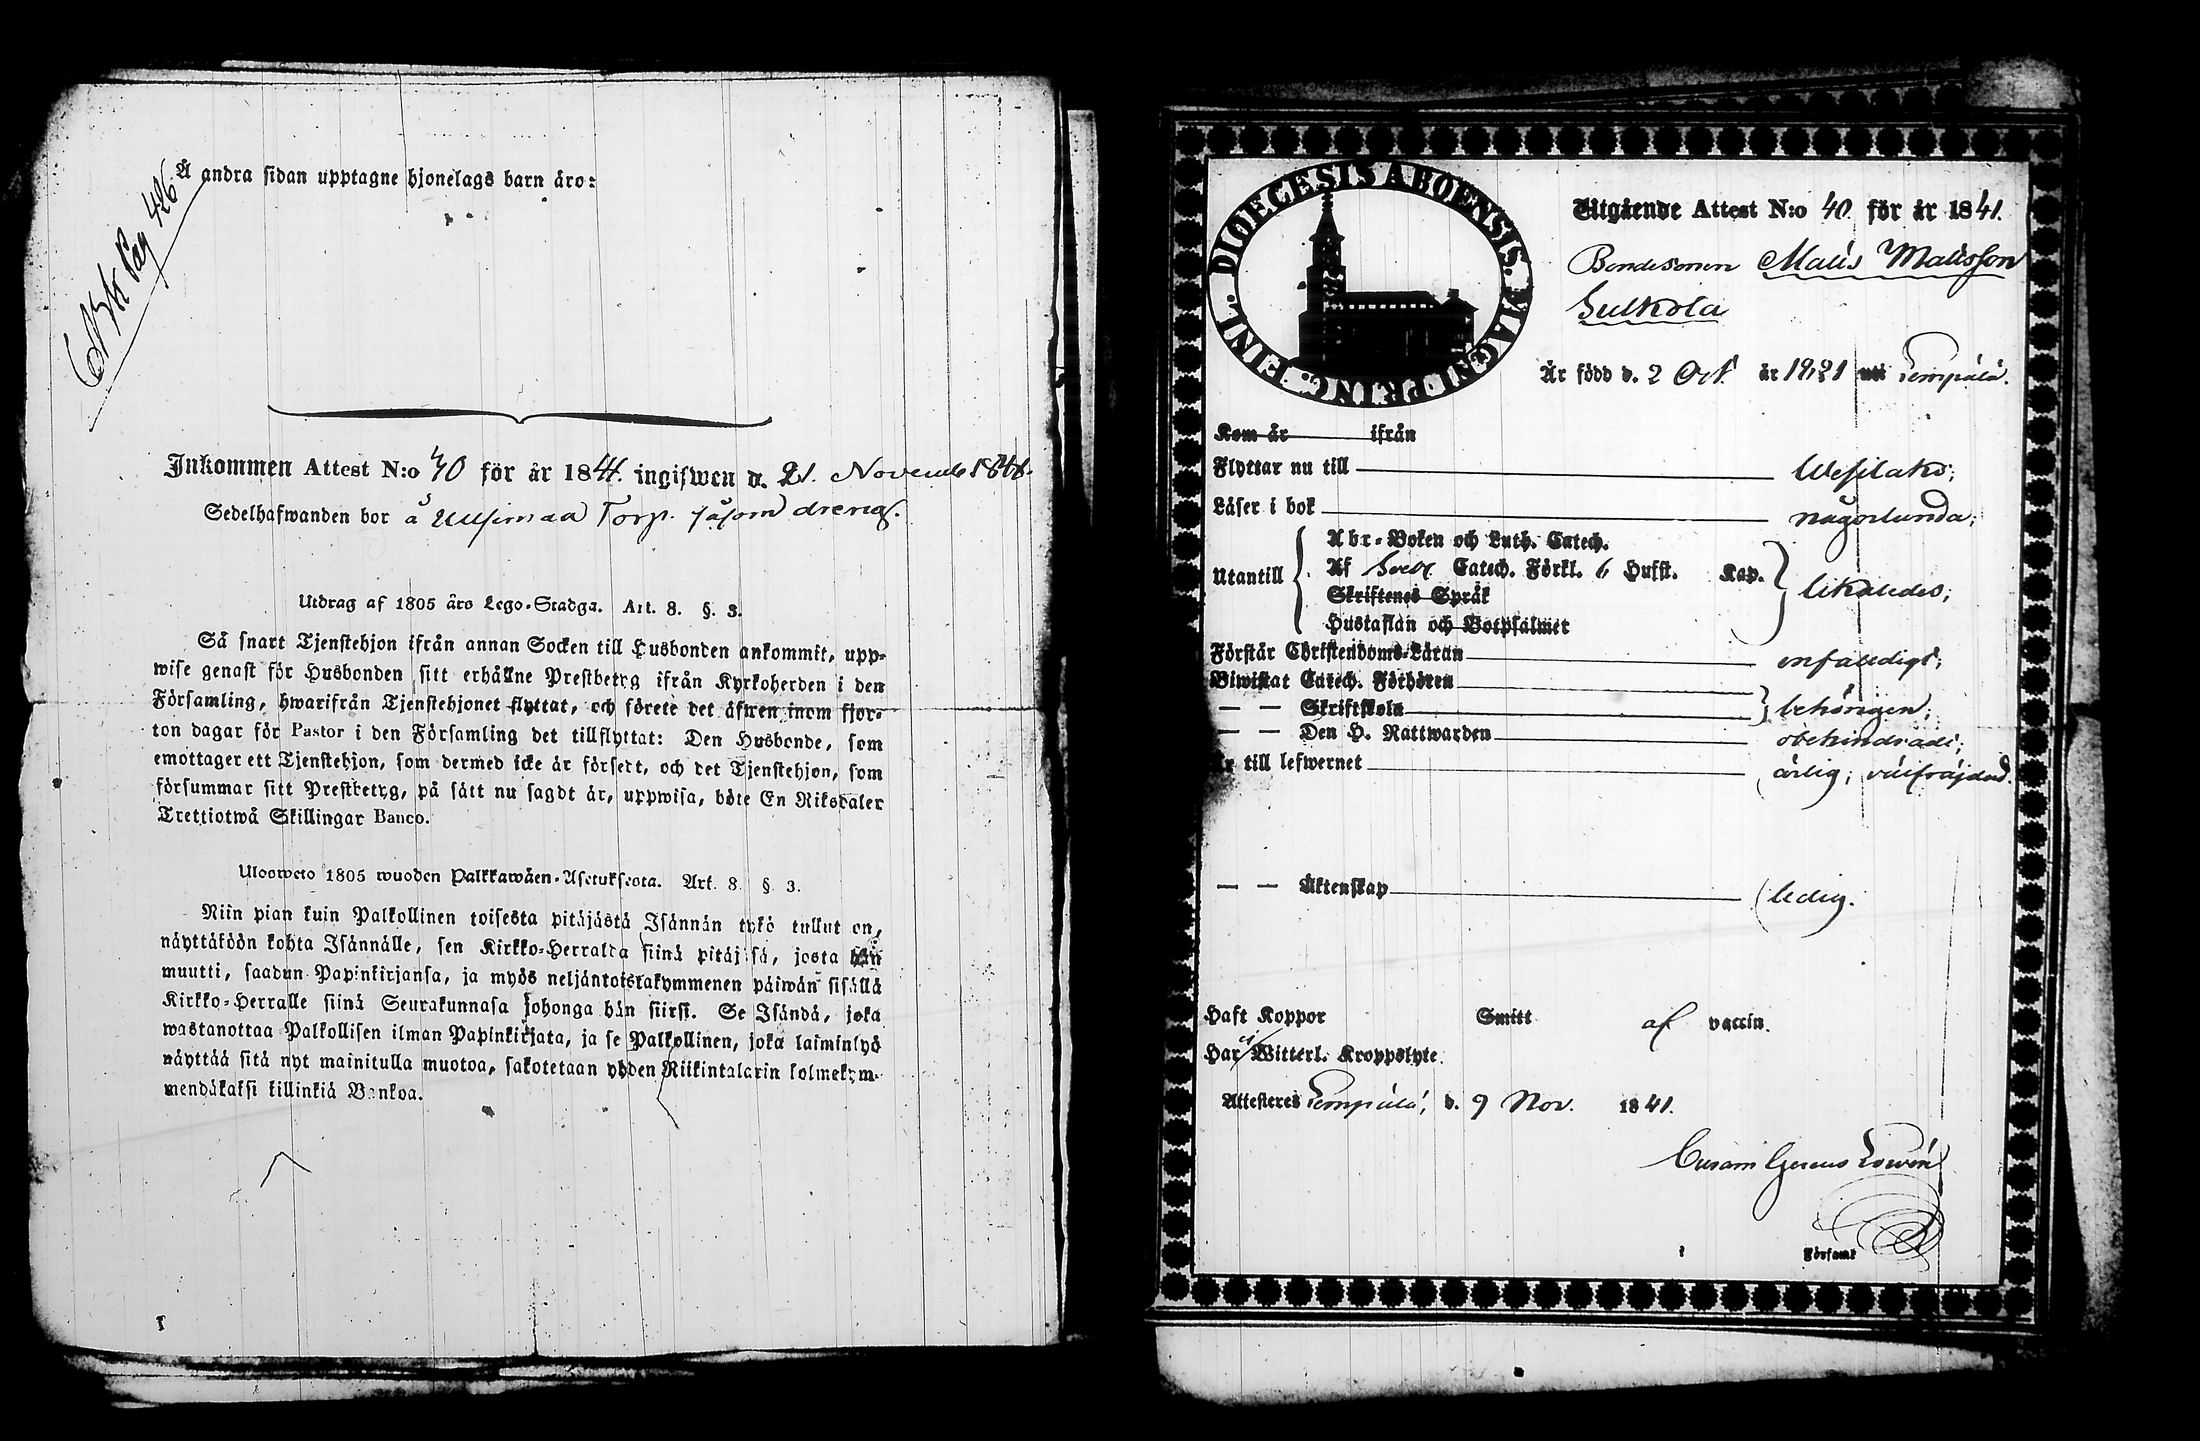 Å andra sidan upptagne hjonelags barn äro:
Pag 426
Inkommen Attest N:o 40 för år 1841. ingifwen d. 21. Novemb 1841.
Sedelhafwanden bor å Uusimaa Torp såsom dreng.
Utdrag af 1805 års Lego-Stadga. Art. 8. §. 3.
Så snart Tjenstehjon ifrån annan Socken till Husbonden ankommit, upp-
wise genast för Husbonden sitt erhållne Prestbetyg ifrån Kyrkoherden i den
Församling, hwarifrån Tjenstehjonet flyttat, och förete det äfwen inom fjor-
ton dagar för Pastor i den Församling det tillflyttat: Den Husbonde, som
emottager ett Tjenstehjon, som dermed icke är försedt, och det Tjenstehjon, som
försummar sitt Prestbetyg, på sätt nu sagdt är, uppwisa, böte En Riksdaler
Trettiotwå Skillingar Banco.
Ulosweto 1805 wuoden Palkkawäen-Asetuksesta. Art. 8. §. 3.
Niin pian kuin Palkollinen toisesta pitäjästä Isännän tykö tullut on,
näyttäköön kohta Isännälle, sen Kirkko-Herralda siinä pitäjäsä, josta hän
muutti, saadun Papinkirjansa, ja myös neljäntoistakymmenen päiwän sisällä
Kirkko-Herralle siinä Seurakunnasa johonga hän siirsi. Se Isändä, joka
wastanottaa Palkollisen ilman Papinkirjata, ja se Palkollinen, joka laiminlyö
näyttää sitä nyt mainitulla muotoa, sakotetaan yhden Riikintalarin kolmekym-
mendäkaksi killinkiä Bankoa.
DIOECESIS ABOENSIS. MAGNI PRINC. FINL.
Utgående Attest N:o 40. för år 1841.
Bondesonen Matts Mattsson
Sulkola
Är född d. 2 Oct. år 1821 uti Lempälä.
Kom år ifrån
Flyttar nu till Wesilaks;
Läser i bok någorlunda;
Utantill
Abc-Boken och Luth. Catech.
Af Sveb. Catech. Förkl. 6 Hufst. Kap.
Skriftenes Språk
Hustaflan och Botpsalmer
likaledes;
Förstår Christendoms-Läran enfaldigt;
Biwistat Catech. Förhören
— — Skriftskola behörigen;
— — Den H. Nattwarden obehindrad;
Är till lefwernet ärlig; välfräjdad.
— — Äktenskap ledig.
Haft Koppor Smitt af vaccin.
Har ej Witterl. Kroppslyte.
Attesteres Lempälä, d. 9 Nov. 1841.
Församl